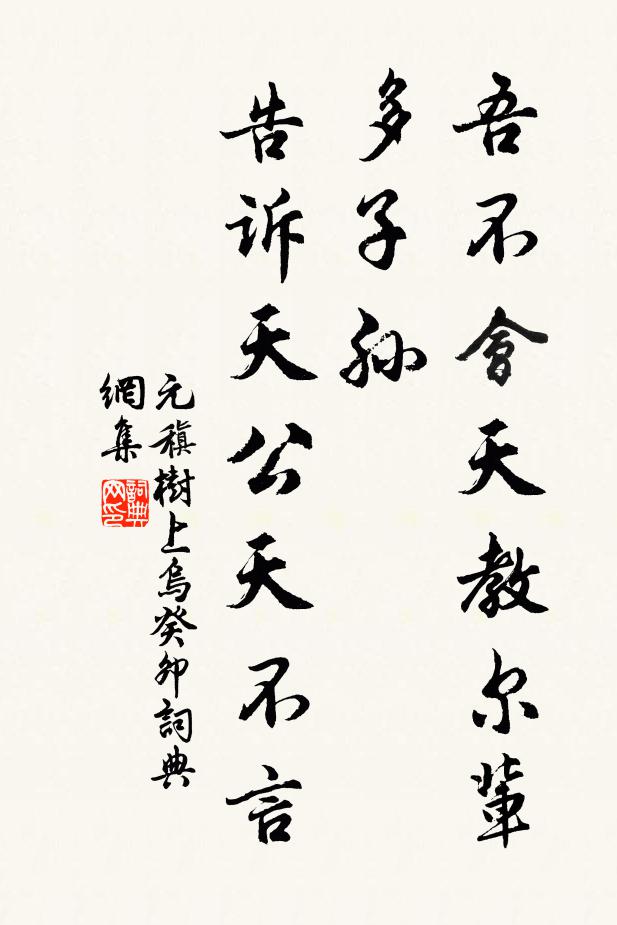 吾不會天教尔輩
多子孙
告诉天公天不言
元稹樹上烏癸卯詞典
網集
詞典网印